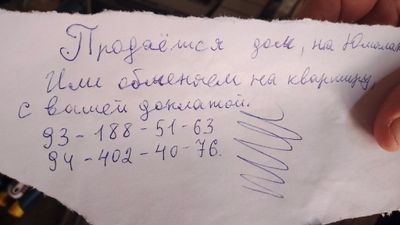 Продаётся дом, на Юмалак
Или обменяем на квартиру,
с вашей доплатой.
93-188-51-63
94-402-40-76.